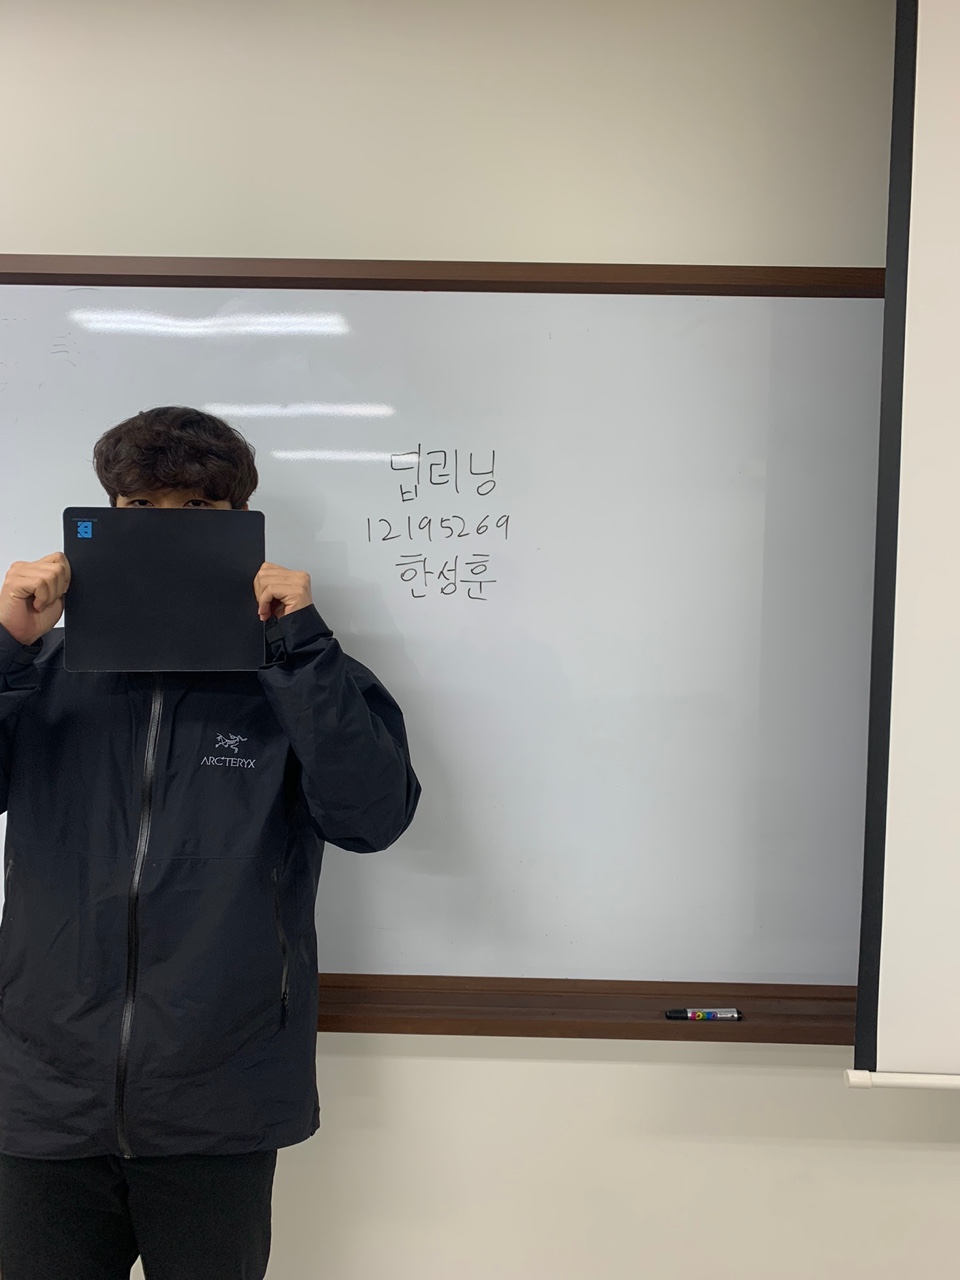 딥러닝
12195269
한성훈
ARC'TERYX